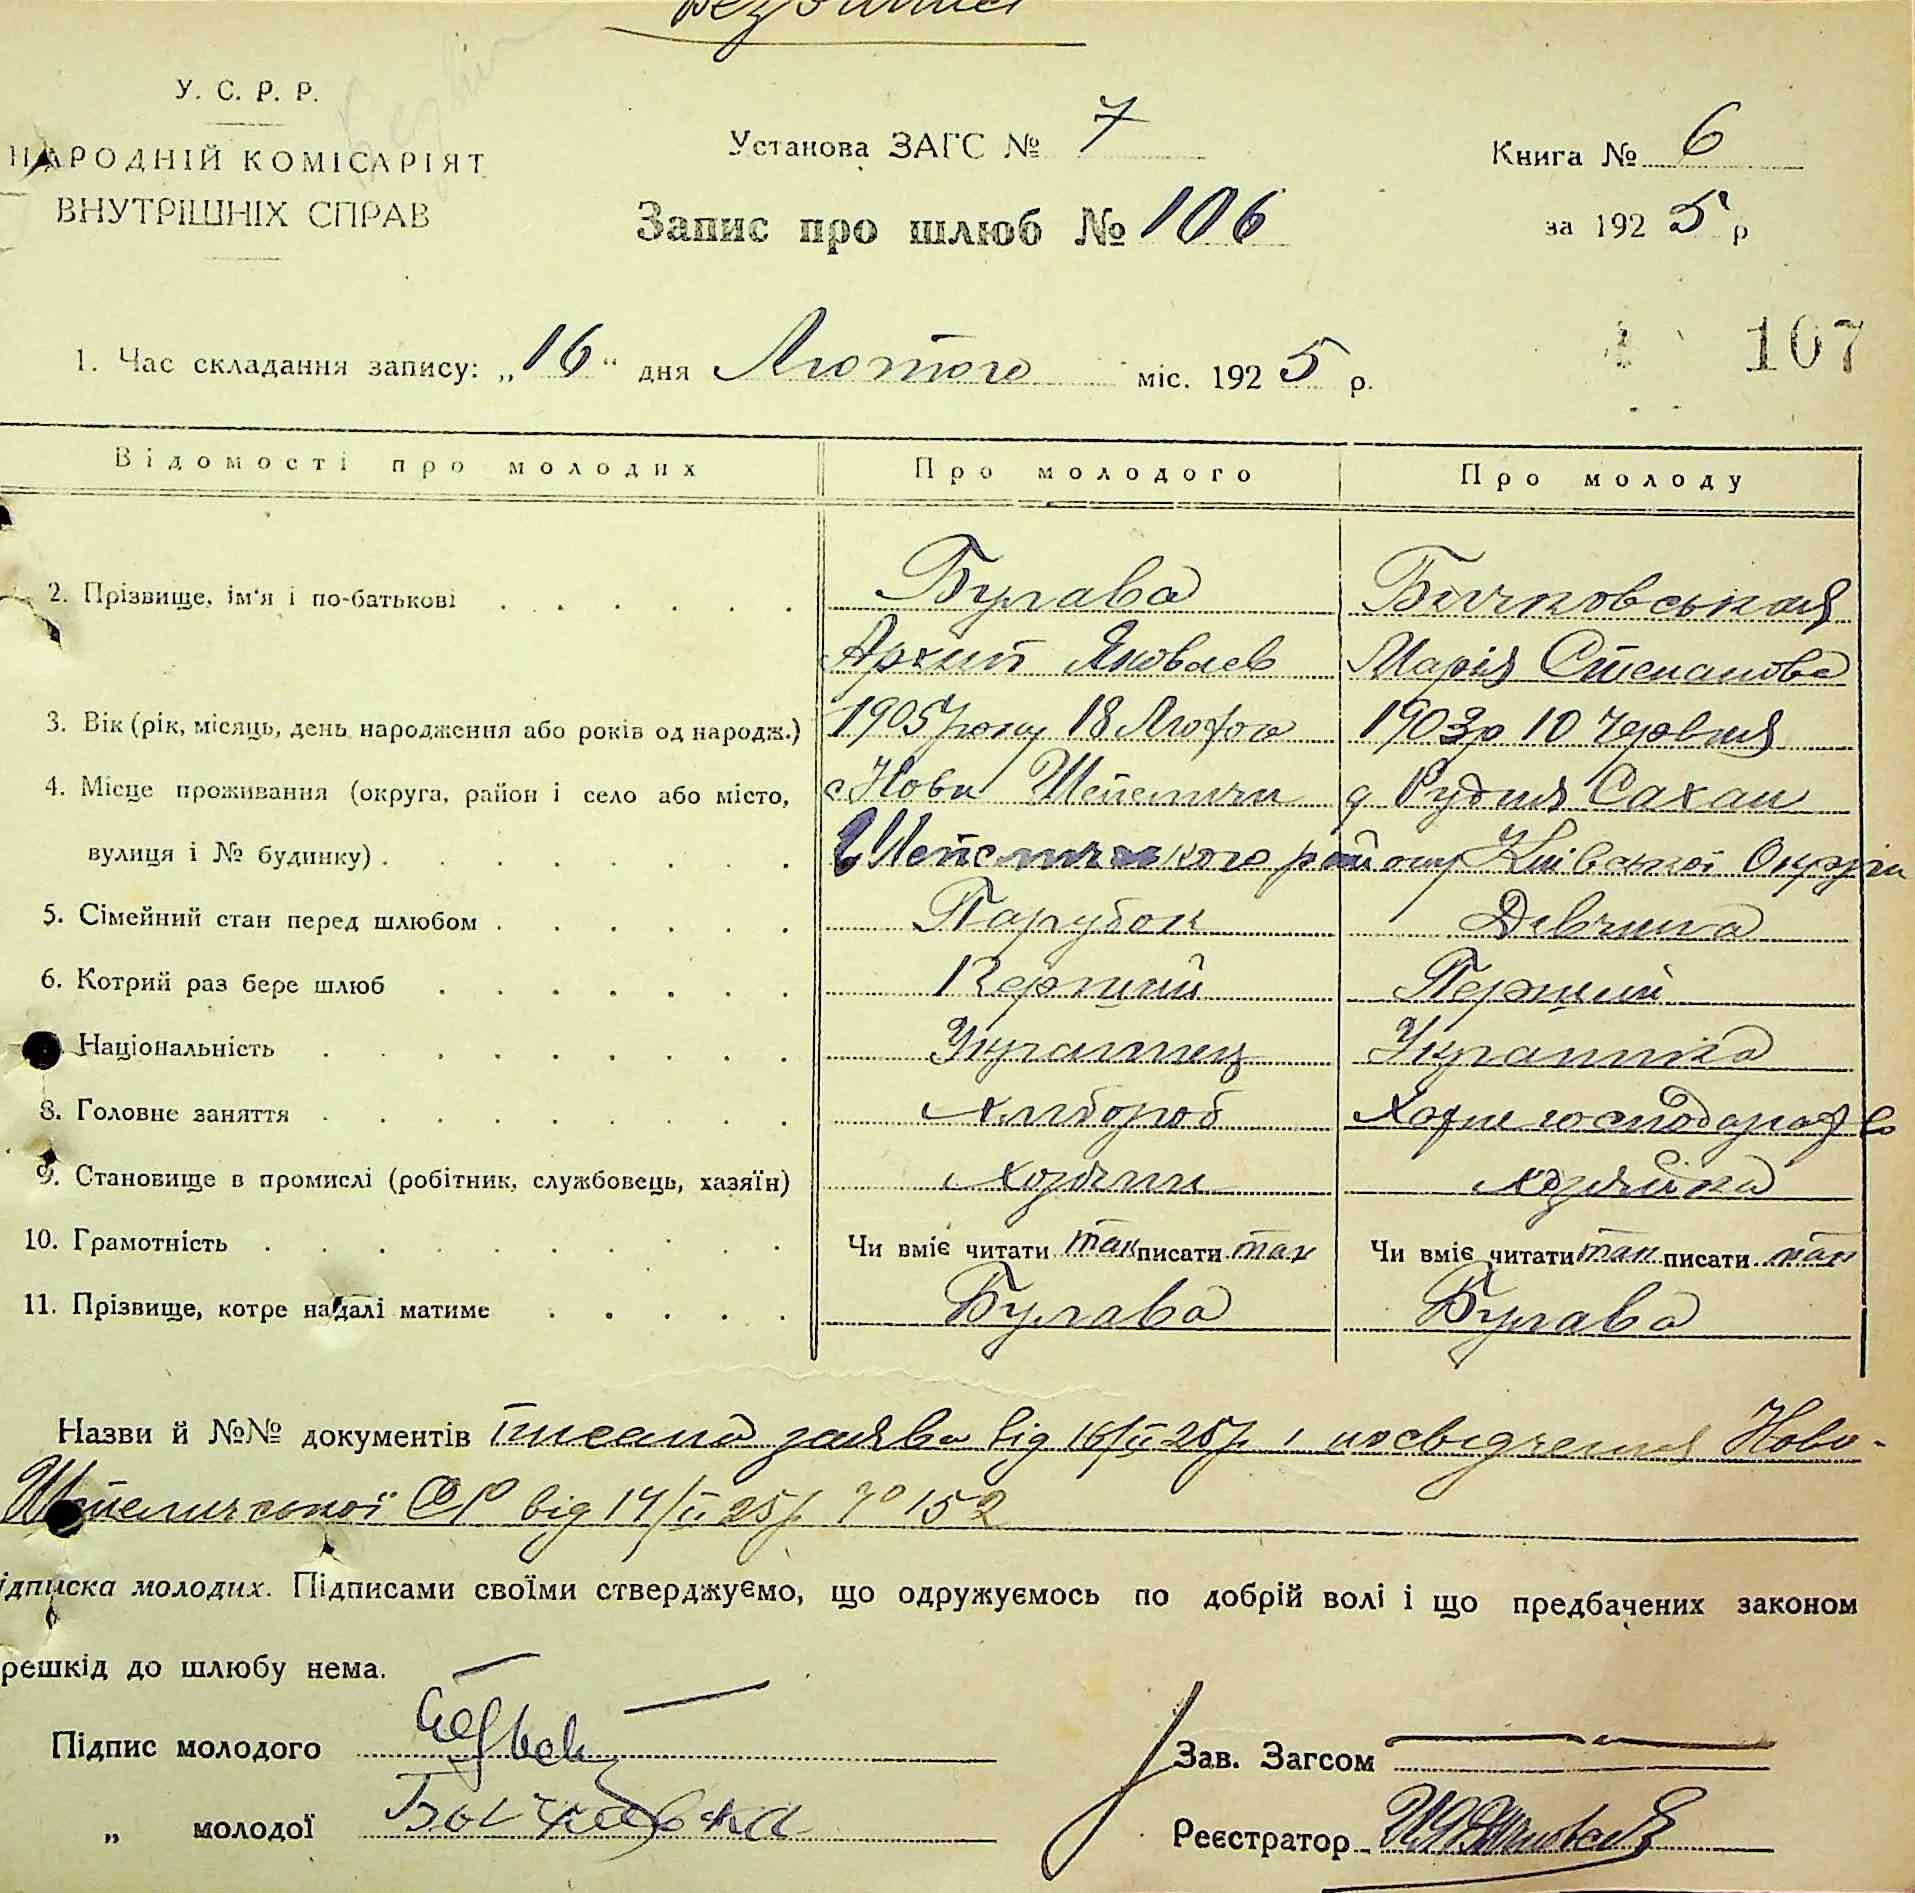 У. С. Р. Р.
НАРОДНІЙ КОМІСАРІЯТ
ВНУТРІШНІХ СПРАВ
Установа ЗАГС № 7
Книга № 6
Запис про шлюб № 106
за 1925 р
107
1. Час складання запису: „16“ дня Лютого міс. 1925 р.
Відомості про молодих Про молодого Про молоду
2. Прізвище, ім'я і по-батькові Булава
Архип Яковлев Марія Степанова
3. Вік (рік, місяць, день народження або років од народж.) 1905 року 18 Лютого 1903 р 10 Червня
4. Місце проживання (округа, район і село або місто, с Нови Шепеличи д Рудня Сахан
вулиця і № будинку) Шепелицького району Київської Округи
5. Сімейний стан перед шлюбом Парубок Девчина
6. Котрий раз бере шлюб Перший Перший
Національність Украинец Украинка
8. Головне заняття Хлибороб Хатне господарство
9. Становище в промислі (робітник, службовець, хазяїн) Хозяин хозяйка
10. Грамотність Чи вміє читати так писати так Чи вміє читати так писати так
11. Прізвище, котре надалі матиме Булава Булава
Назви й №№ документів писана заява від 16/II 25 р. і посвідчення Ново-
Шепелической СР від 14/II 25 р. № 152
ідписка молодих. Підписами своїми стверджуємо, що одружуємось по добрій волі і що предбачених законом
решкід до шлюбу нема.
Підпис молодого
Зав. Загсом
„ молодої
Реєстратор